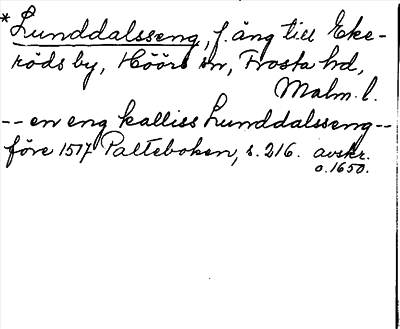 *Lunddalsseng, f. äng till Eke-
röds by, Höörs sn, Frosta hd,
Malm. l.
-- en eng kalliss Lunddalsseng --
före 1517 Palteboken, s. 216. avskr.
o. 1650.